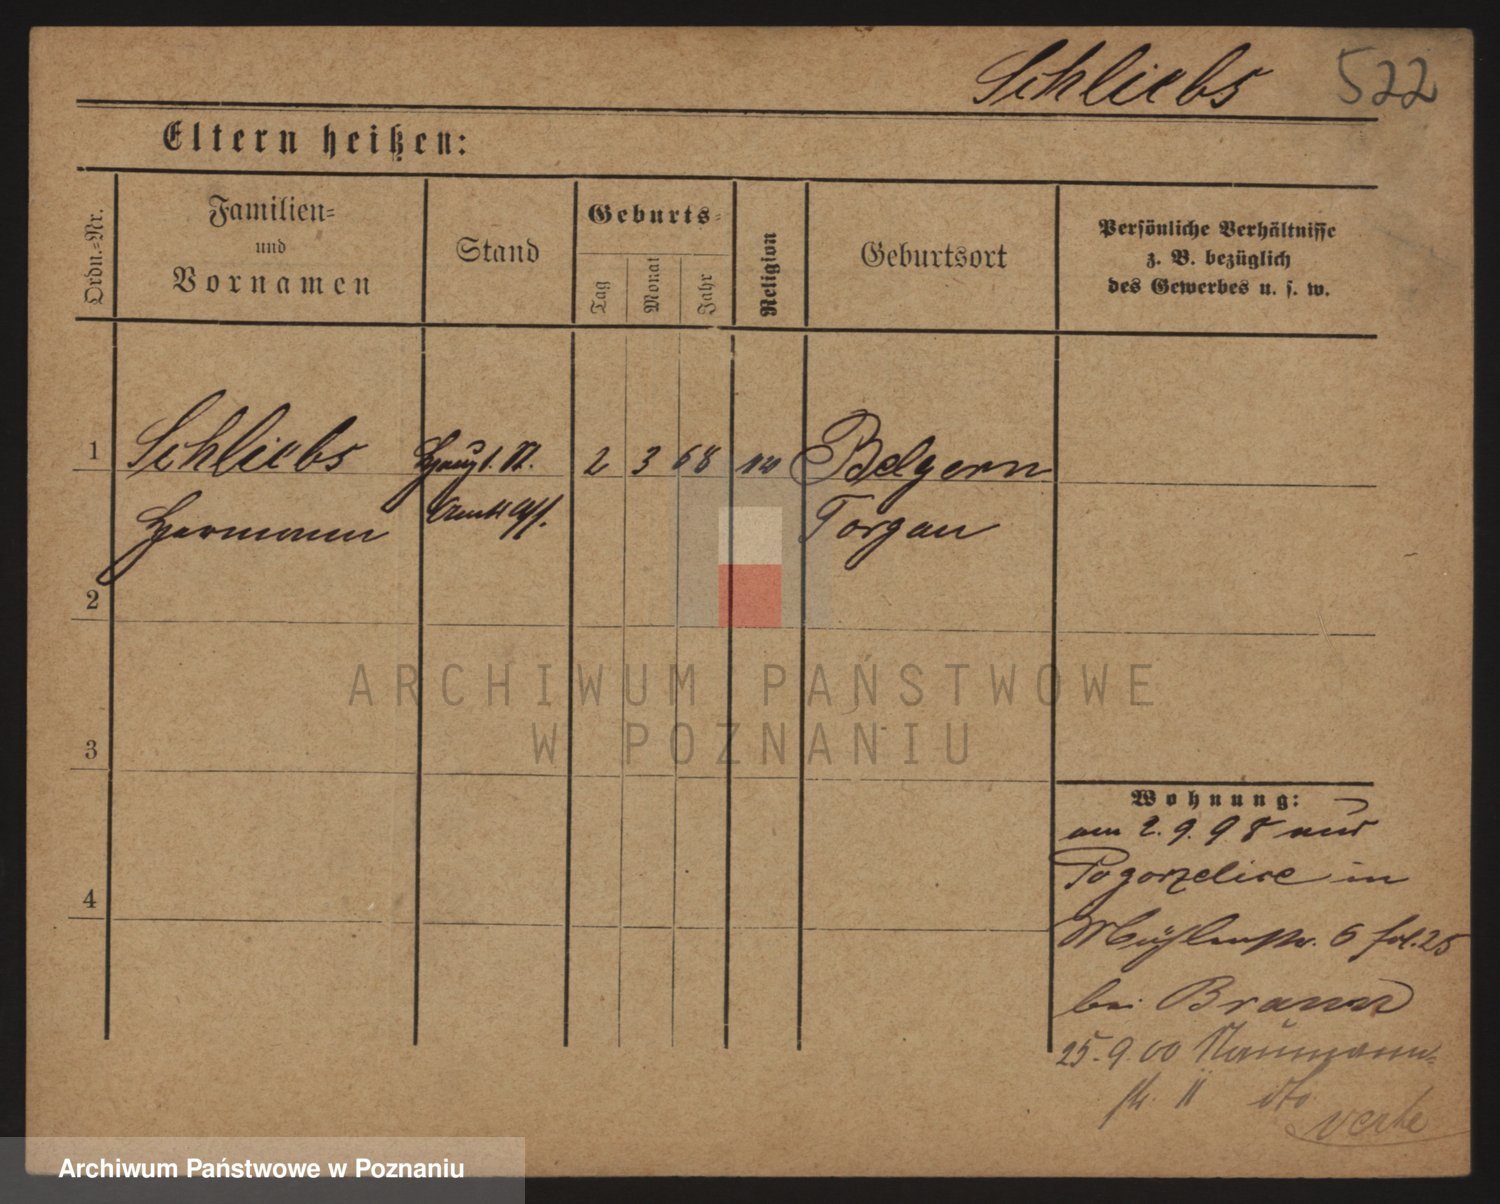 Schliebs 522
Eltern heißen:
Ordn.-Nr.
Familien-
und
Vornamen
Stand
Geburts-
Tag
Monat
Jahr
Religion
Geburtsort
Persönliche Verhältnisse
z. B. bezüglich
des Gewerbes u. s. w.
1 Schliebs 2 3 68 Belgern
Hermann Torgau
2
3
4
ARCHIWUM PAŃSTWOWE
W POZNANIU
Wohnung:
am 2. 9. 98 aus
Pogorzelice in
Mühlenstr. 6 fol. 25
bei Braun
25. 9. 00 Naumann-
str. 11 dto
verte
Archiwum Państwowe w Poznaniu